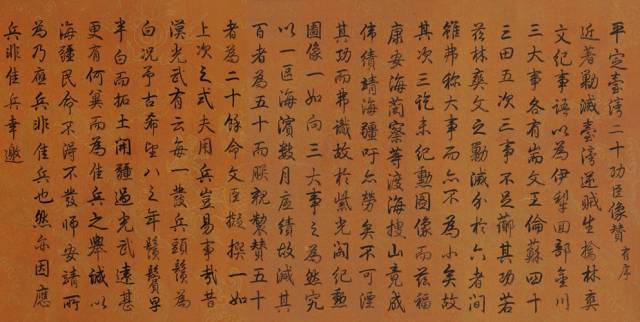 平定臺灣二十功臣像贊有序
近著勦滅臺灣逆賊生擒林爽
文紀事語以為伊犁回部金川
三大事各有耑文王倫蘇四十
三田五次三事不足薌其功若
茲林爽文之勦滅介於六者間
雖弗稱大事而亦不為小矣故
其次三訖未紀勲圖像而茲福
康安海蘭察等渡海搜山竟成
偉績靖海疆吁亦勞矣不可湮
其功而弗識故於紫光閣紀勲
圖像一如向三大事之為然究
以一區海濱數月底績故減其
百者為五十而朕親製贊五十
者為二十餘命文臣擬撰一如
上次之式夫用兵豈易事哉昔
漢光武有云每一發兵頭鬚為
白況予古希望八之年鬚鬢早
半白而拓土開疆過光武遠甚
更有何冀而為佳兵之舉誠以
海疆民命不得不發師安靖所
為乃應兵非佳兵也然亦因應
兵非佳兵幸邀